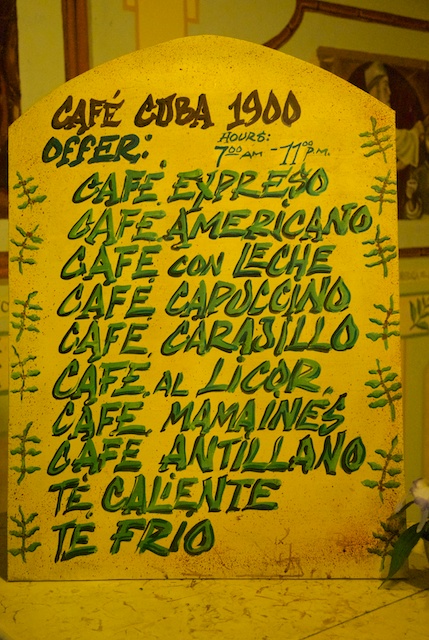 CAFÉ CUBA 1900
OFFER:
HOURS:
7⁰⁰ AM - 11⁰⁰ P.M.
CAFÉ. EXPRESO
CAFE. AMERICANO
CAFÉ CON LECHE
CAFÉ CAPUCCINO
CAFE. CARAJILLO
CAFÉ. AL LICOR.
CAFE. MAMAINÉS
CAFE ANTILLANO
TÉ CALIENTE
TÉ FRIO